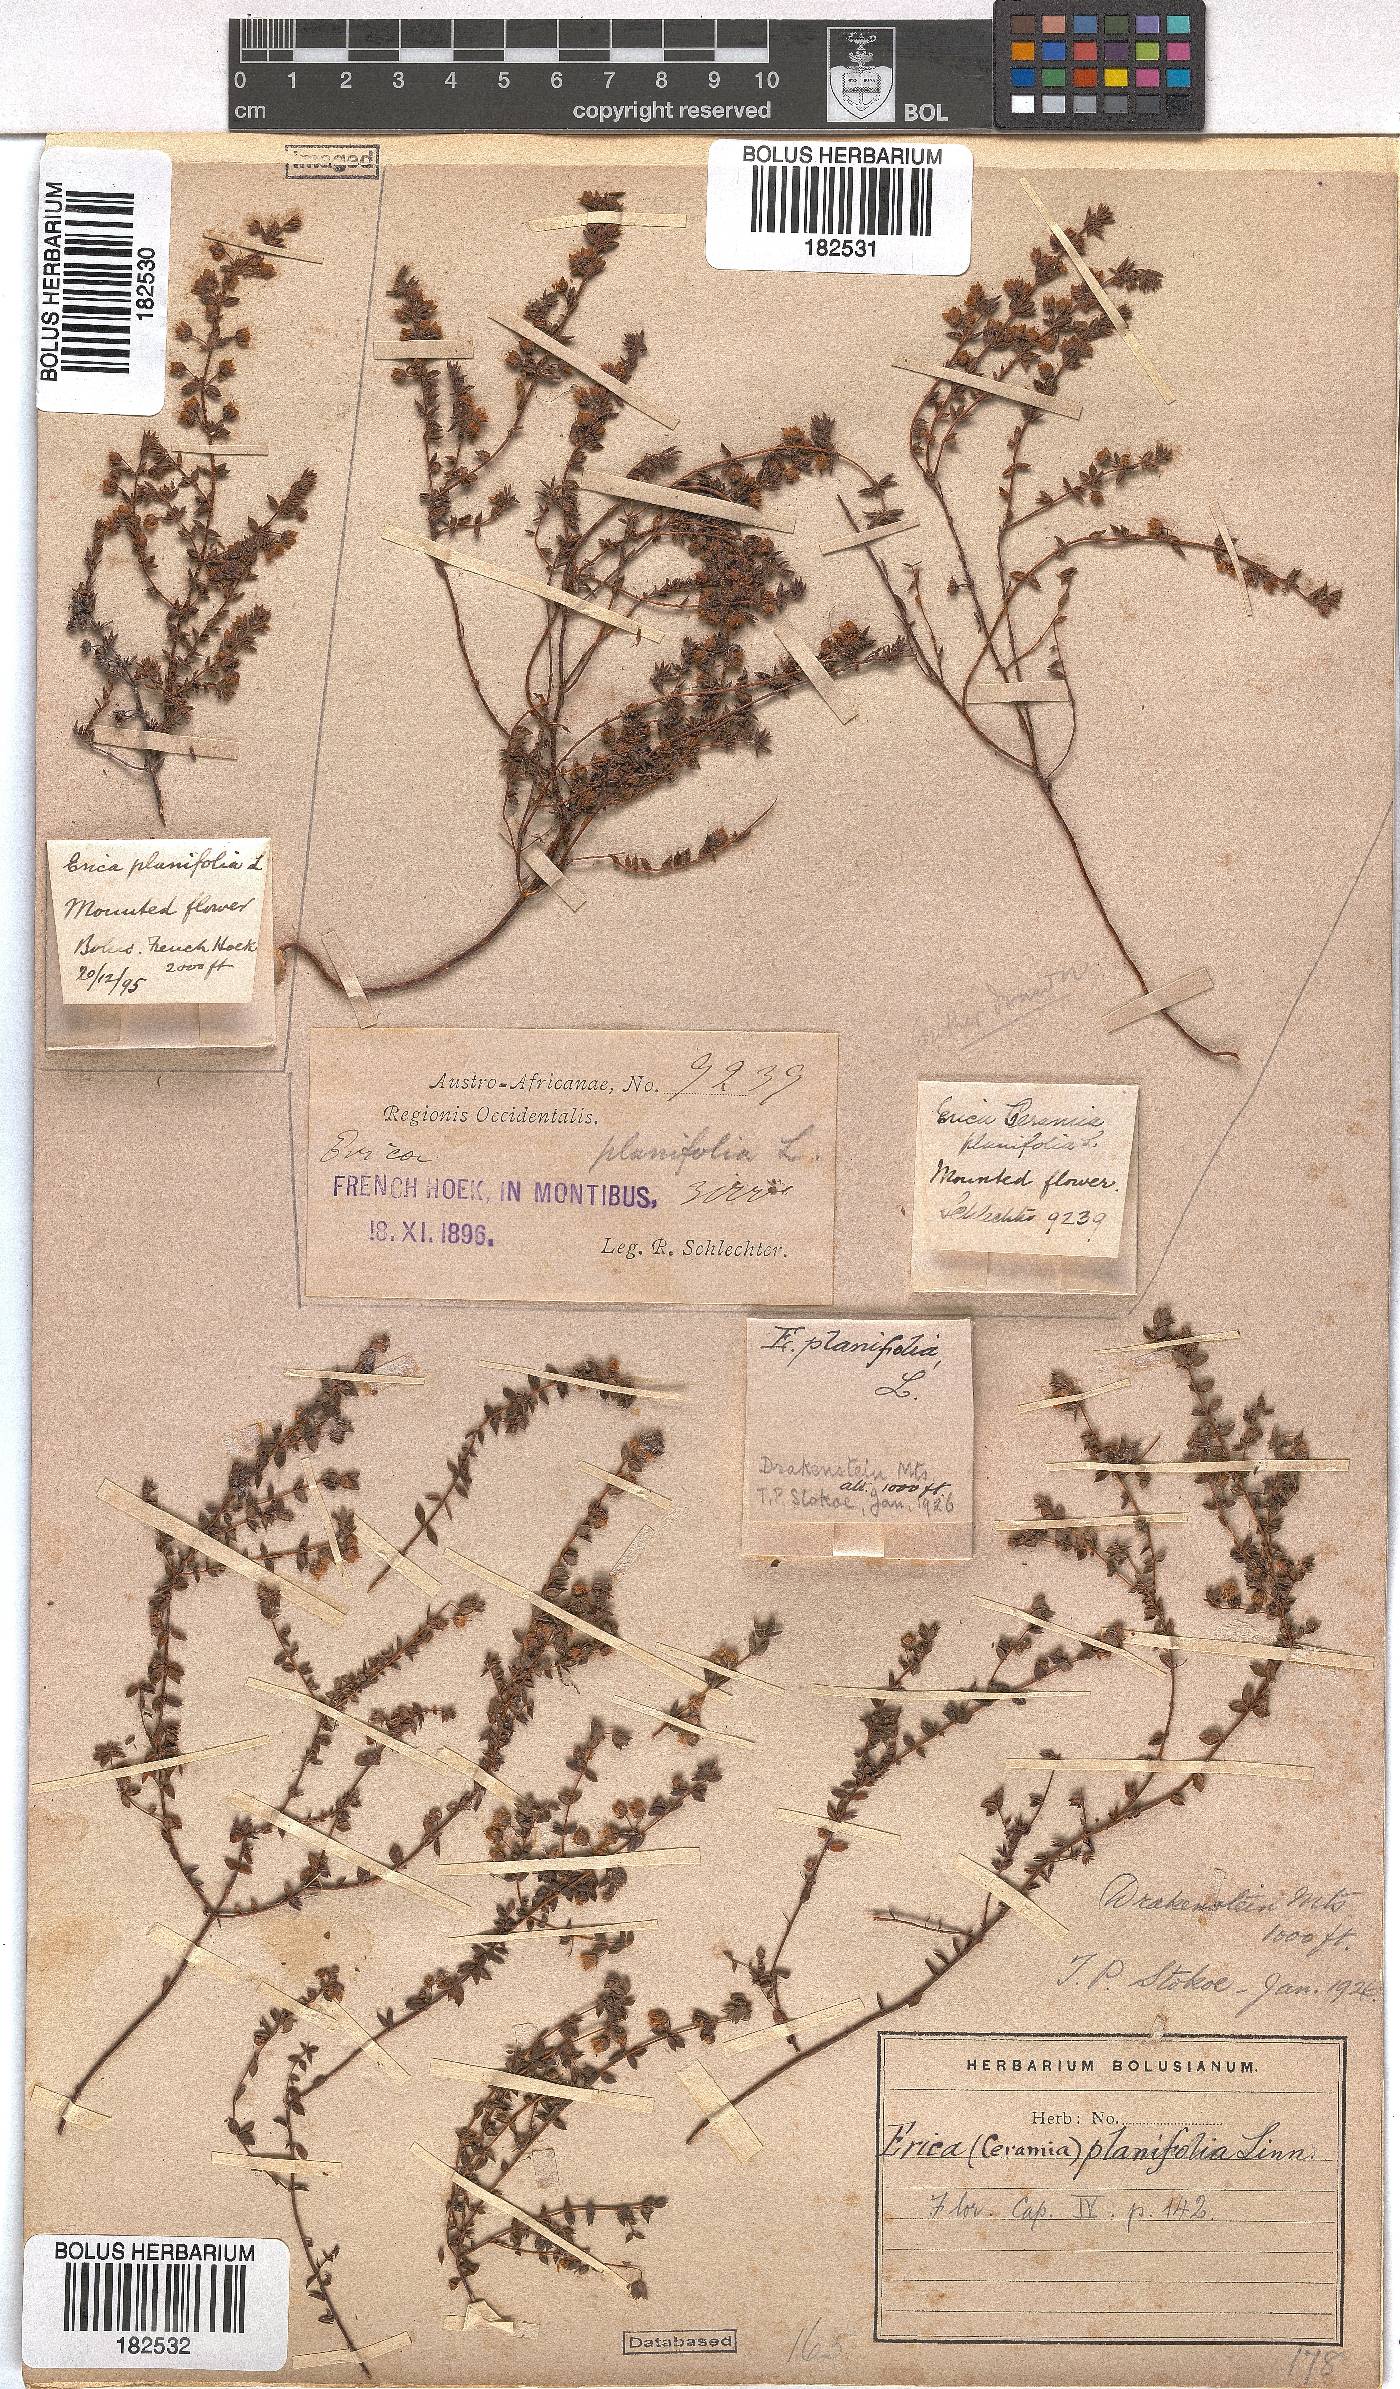 0 1 2 3 4 5 6 7 8 9 10
cm
copyright reserved
BOL
imaged
BOLUS HERBARIUM
182530
BOLUS HERBARIUM
182531
Erica planifolia L
Mounted flower
Bolus. French Hoek
20/12/95 2000 ft
Austro-Africanae, No. 9239
Regionis Occidentalis.
Erica planifolia L.
FRENCH HOEK, IN MONTIBUS,
18. XI. 1896.
Leg. R. Schlechter.
further drawn
Erica Ceramia
planifolia L.
Mounted flower.
Schlechter 9239
E. planifolia,
L.
Drakenstein Mts
alt. 1000 ft.
T.P. Stokoe, Jan. 1926
Drakenstein Mts
1000 ft.
T. P. Stokoe - Jan. 1926.
HERBARIUM BOLUSIANUM.
Herb: No.
Erica (Ceramia) planifolia Linn.
Flor. Cap. IV. p. 142
BOLUS HERBARIUM
182532
Databased
165
178